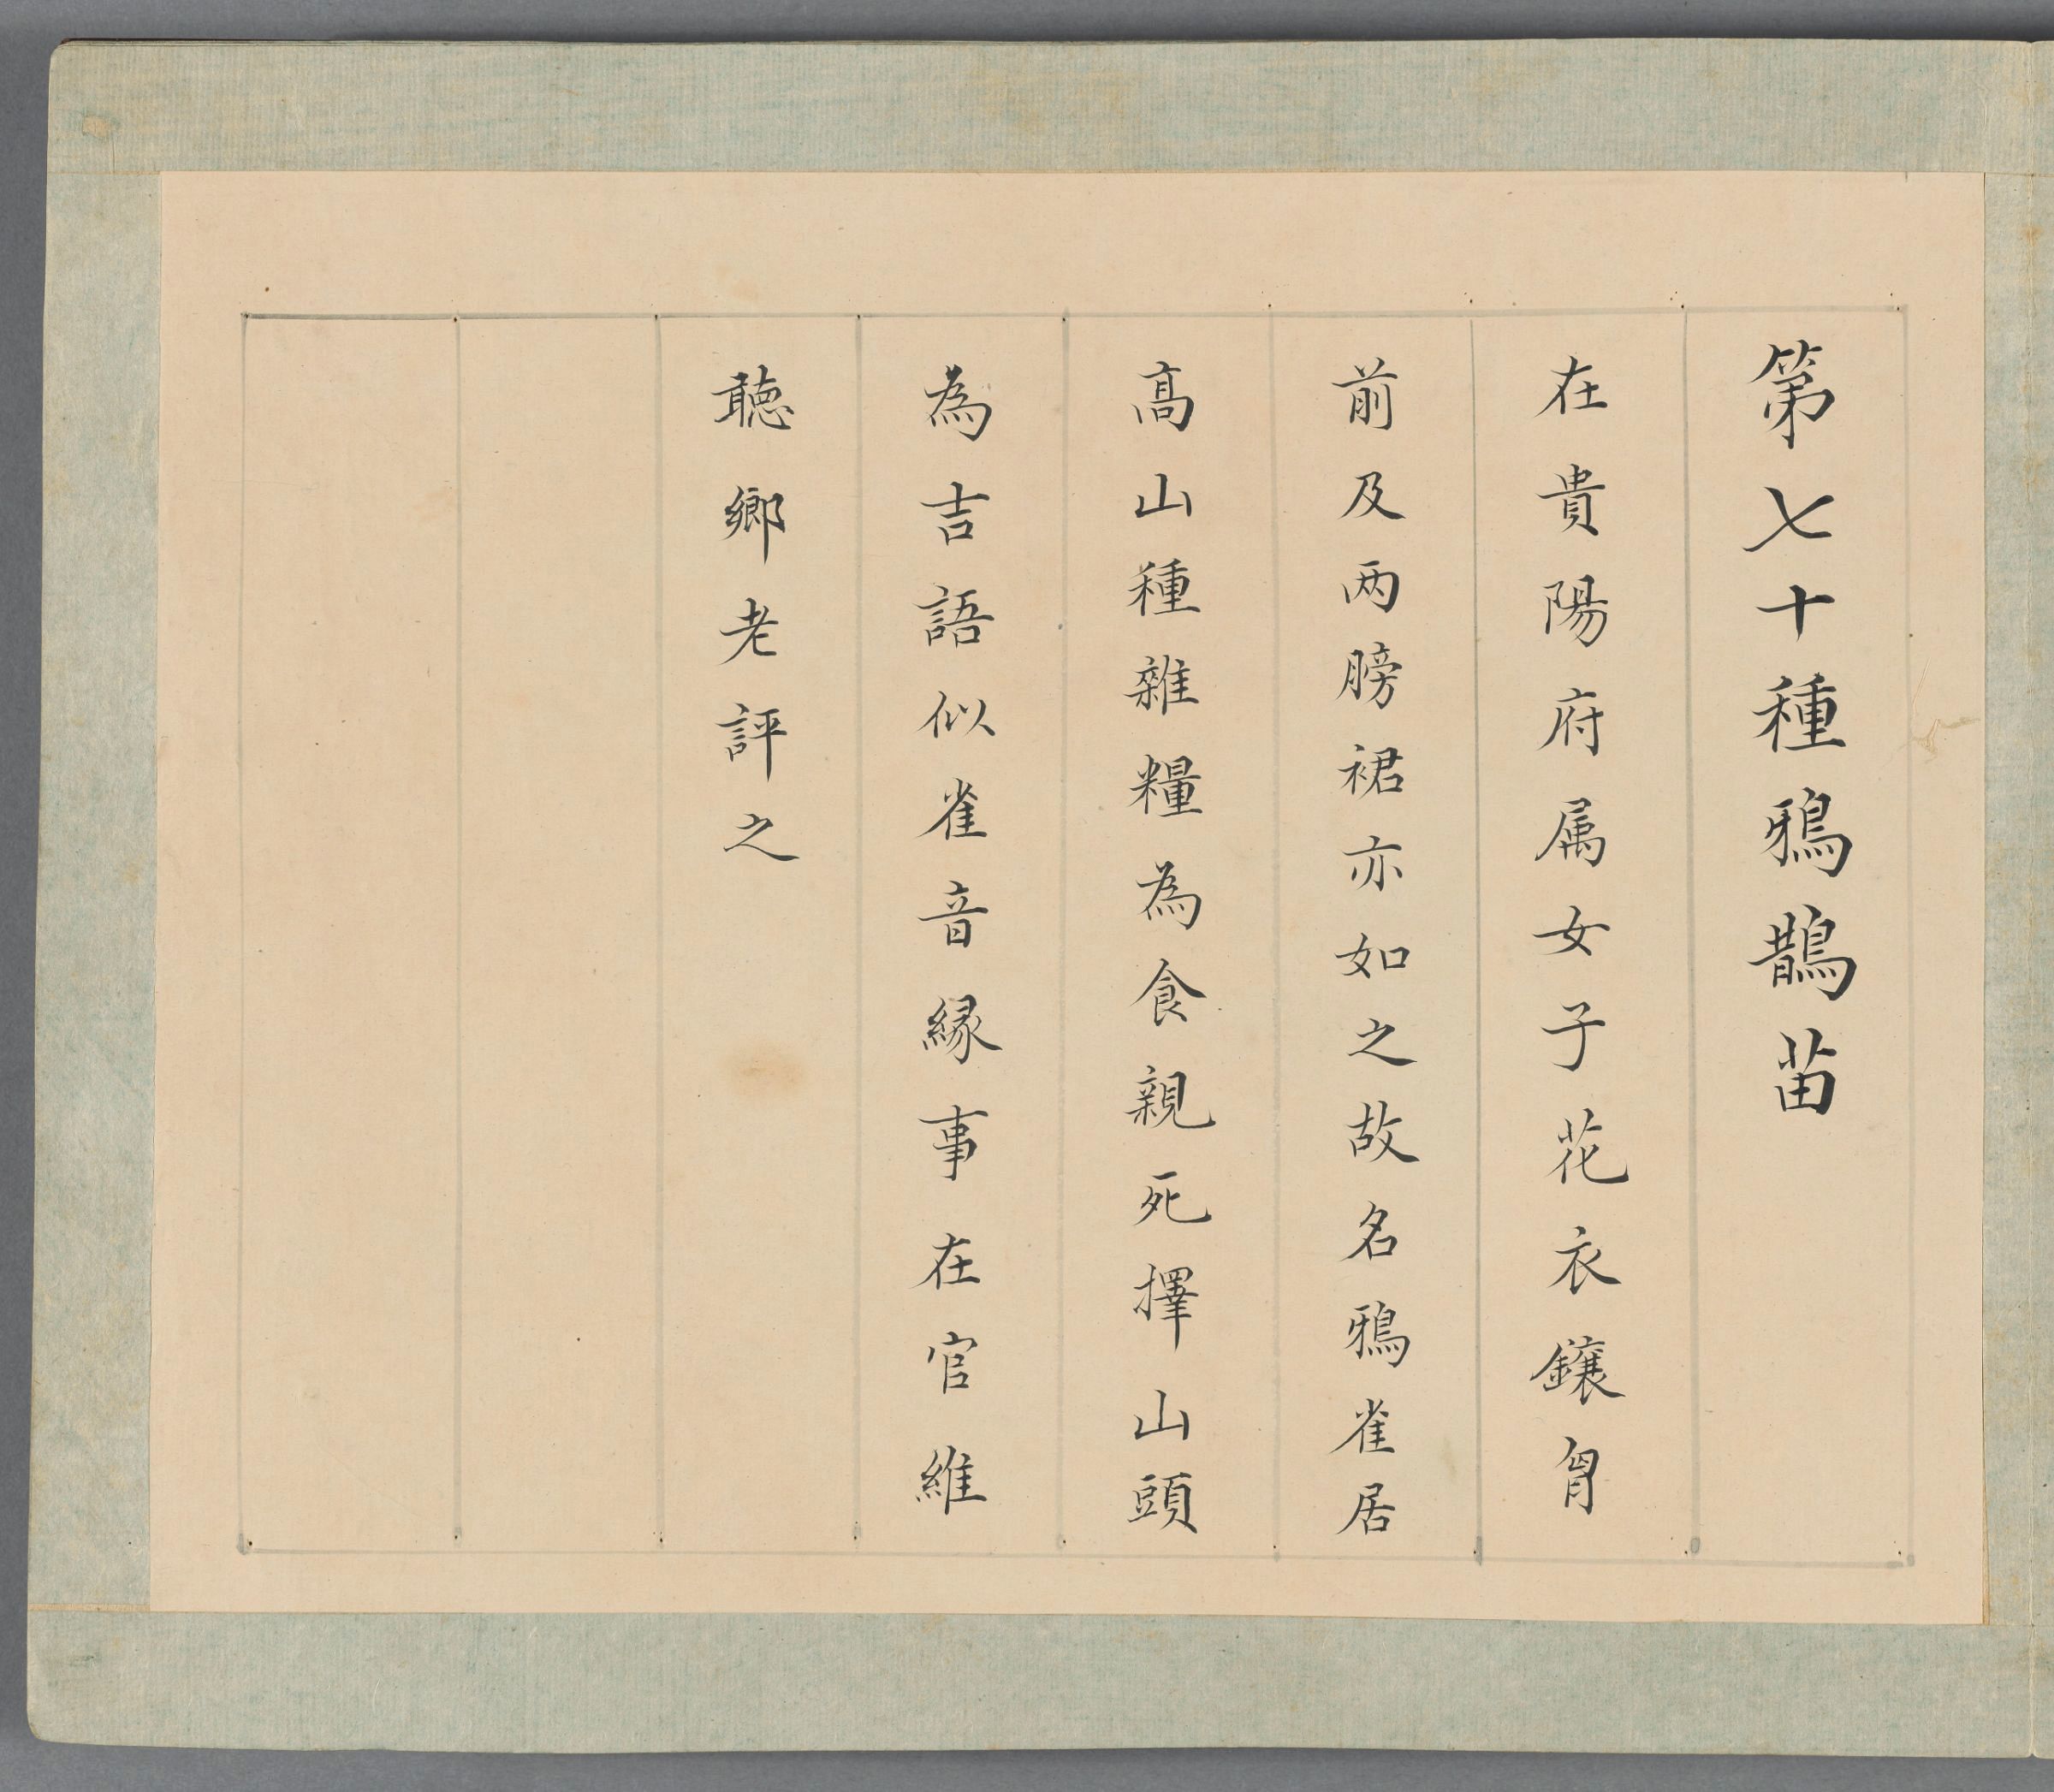 第七十種鴉鵲苗
在貴陽府属女子花衣鑲胷
前及两膀裙亦如之故名鴉雀居
高山種雜糧為食親死擇山頭
為吉語似雀音縁事在官維
聴鄉老評之